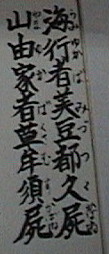 海行者美豆都久屍
山由家者草牟須屍